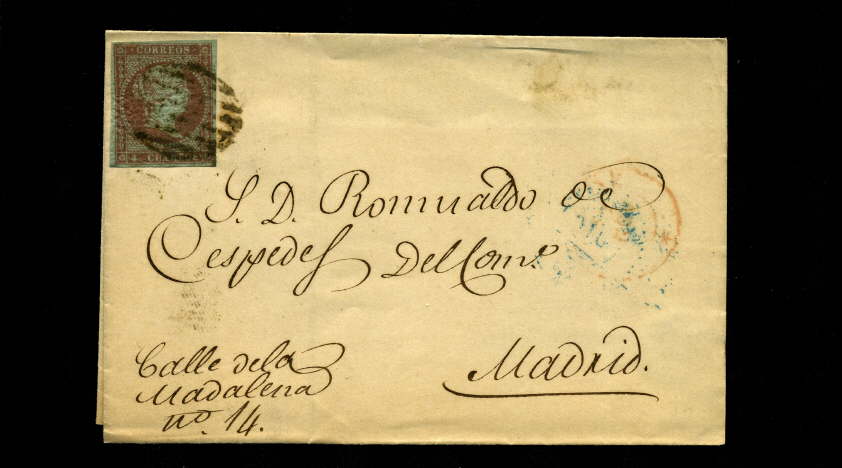 CORREOS
4 CUARTOS
S. D. Romualdo de
Cespedes Del Com.º
Madrid.
Calle dela
Madalena
nº. 14.